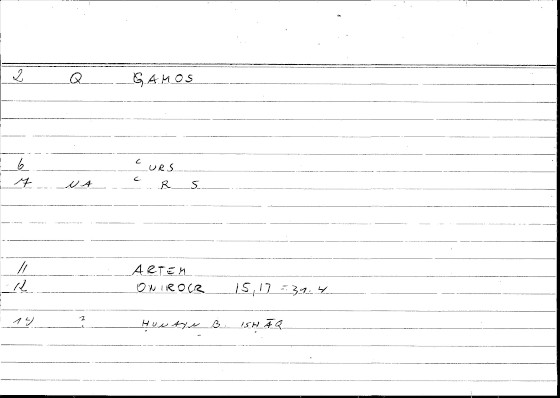 2 Q GAMOS
6 c URS
7 NA c R S
11 ARTEM
12 ONIROCR 15,17 = 31.4
14 ? ḤUNAYN B. ISḤĀQ